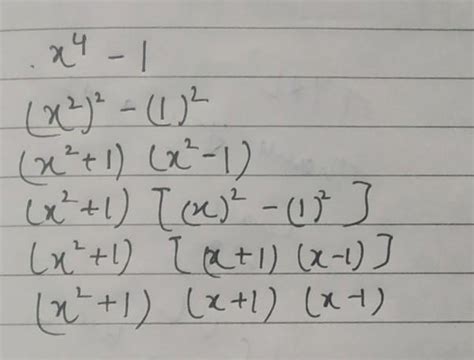 . x⁴ - 1
(x²)² - (1)²
(x²+1) (x²-1)
(x²+1) [(x)² - (1)²]
(x²+1) [(x+1) (x-1)]
(x²+1) (x+1) (x-1)